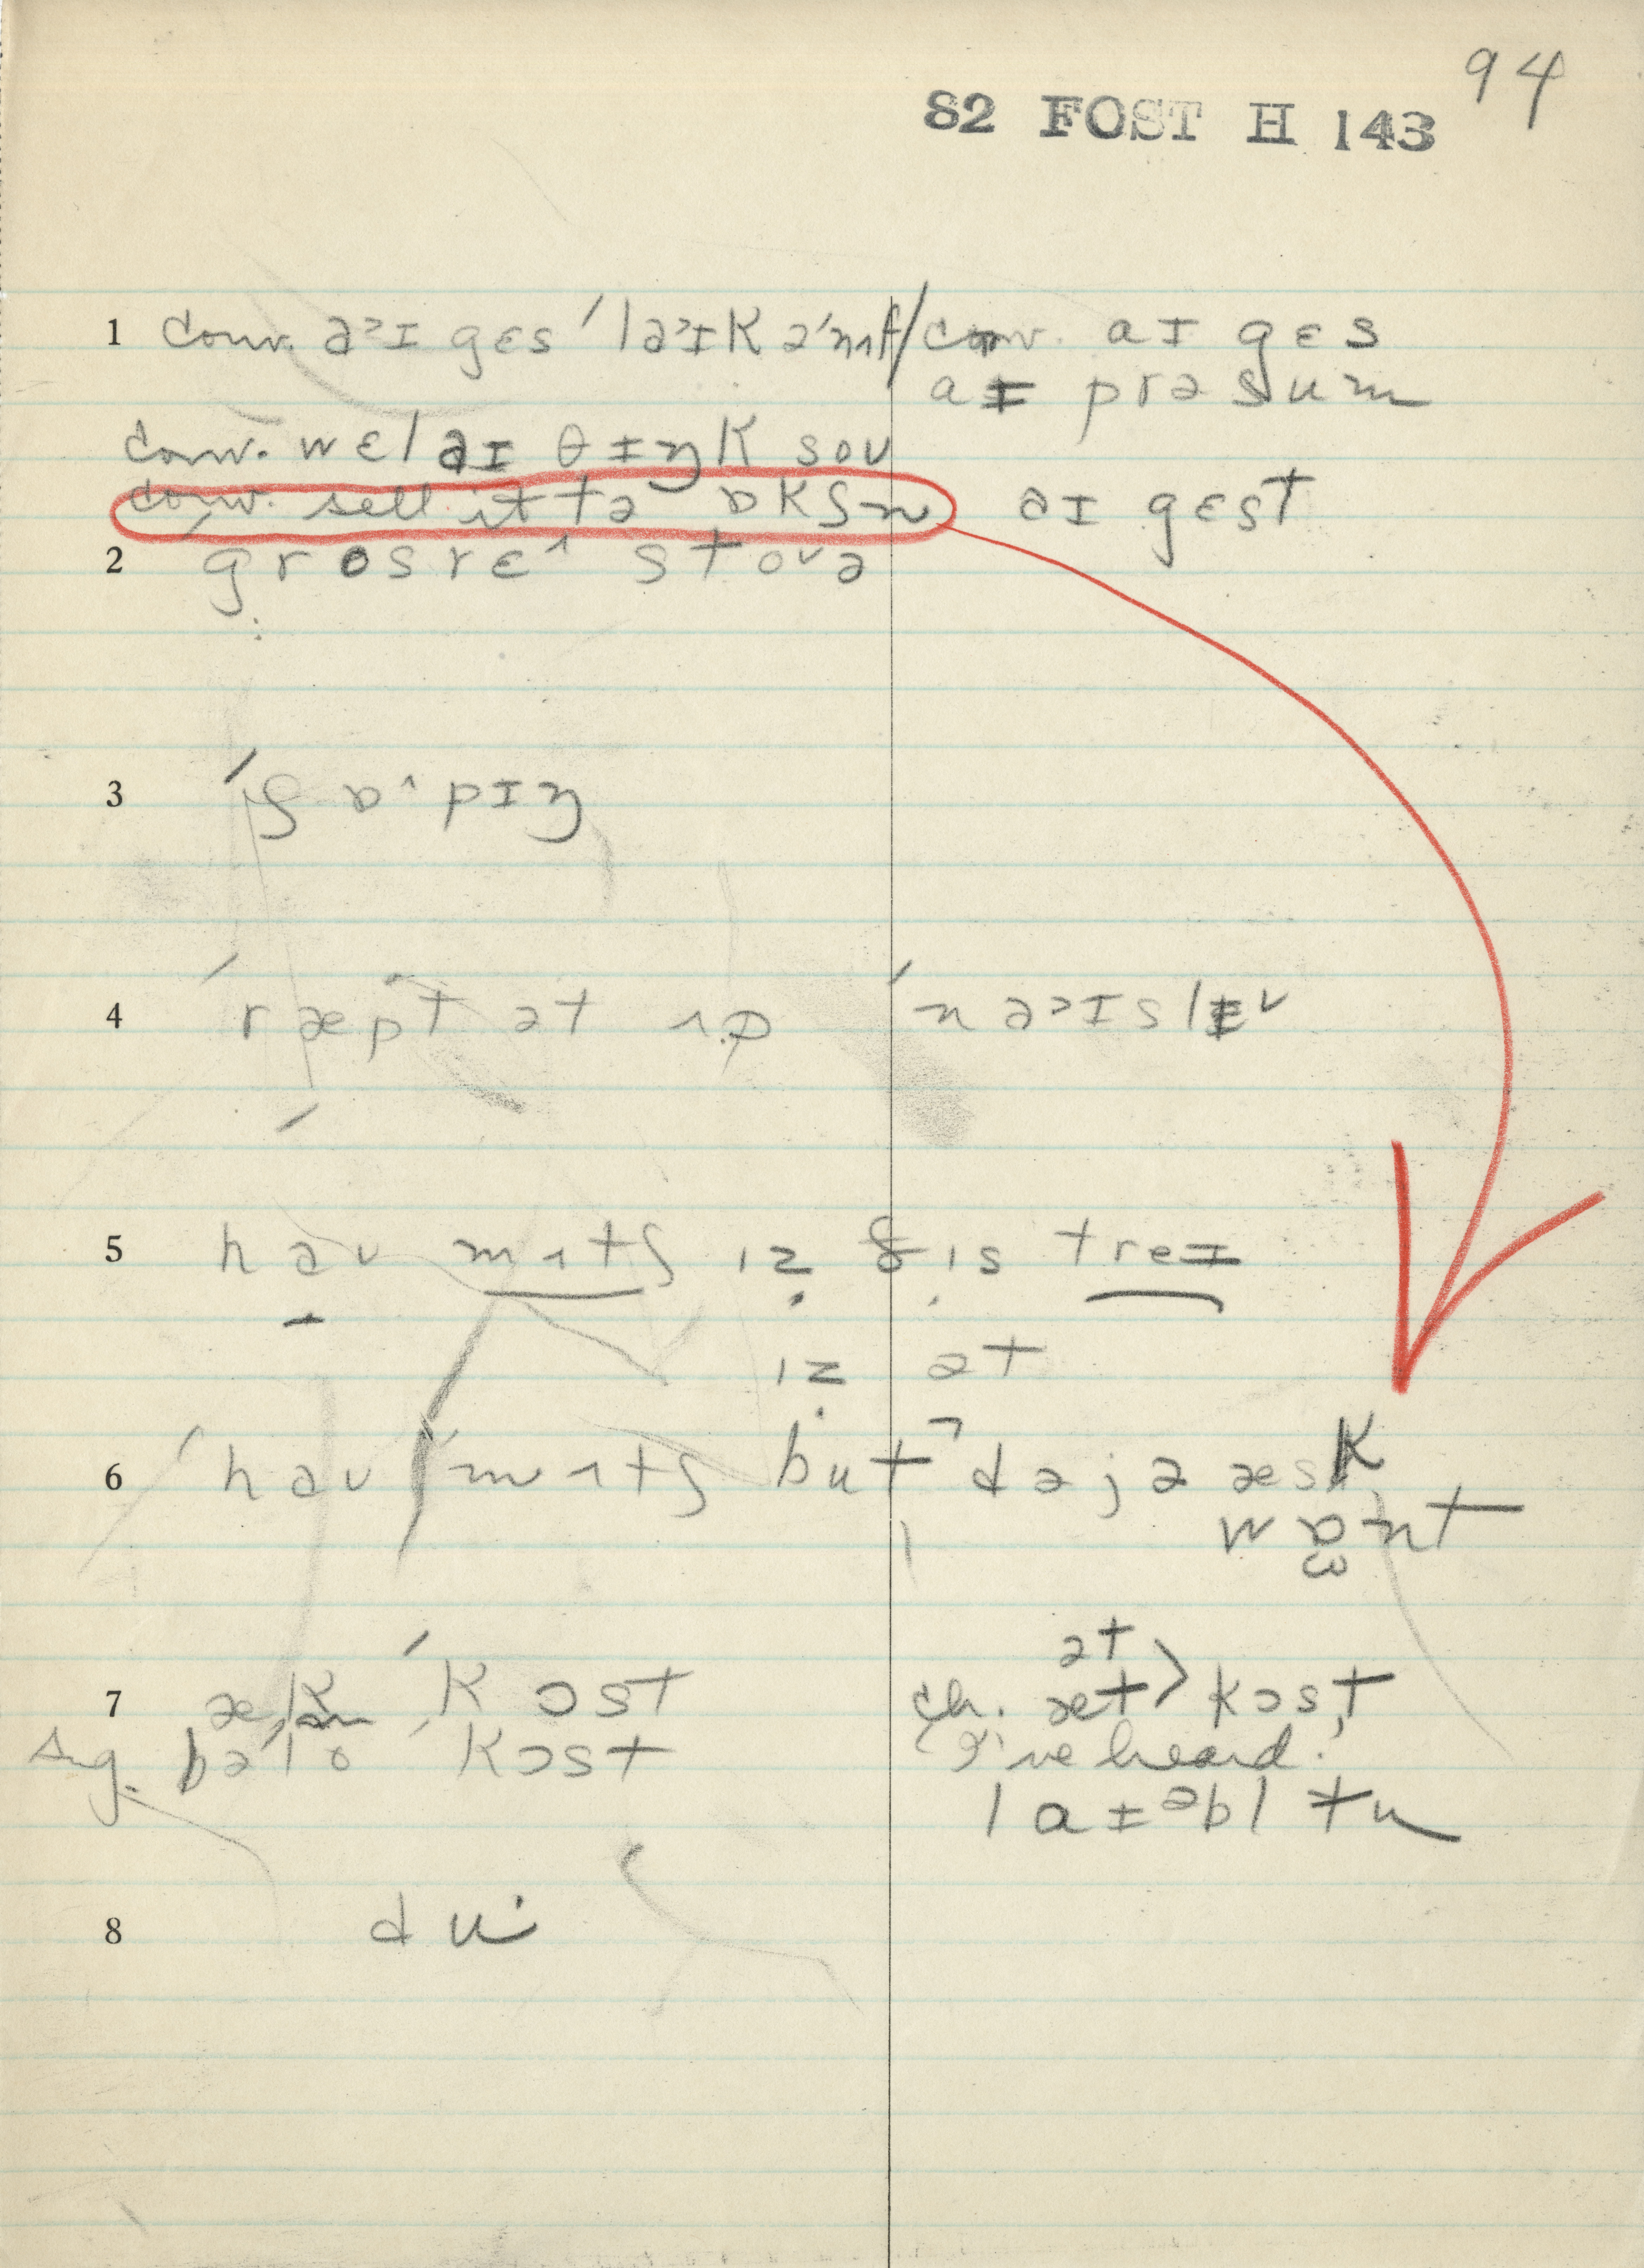 94
82 FOST H 143
1 conv. a˃ɪ gɛs ˈla˃ɪk ə'nʌf / conv. aɪ gɛs
aɪ prəsum
conv. wɛl aɪ θɪŋk sou
conv. sell it tə ɒkʃn aɪ gɛst
2 ˈgrosrɛ^ stovə
3 ˈʃɒ^pɪŋ
4 ˈræpt ət ʌp ˈna˃ɪslɪ˅
5 hau mʌtʃ ɪz ðis treɪ
ɪz ət
6 ˈhau ˈmʌtʃ but dəjə æsk
wɒnt
7 ˈkɔst ch. ət
æt > kɔst
sug. ˈkɔst (I've heard.
laɪəbl tu
8 du·